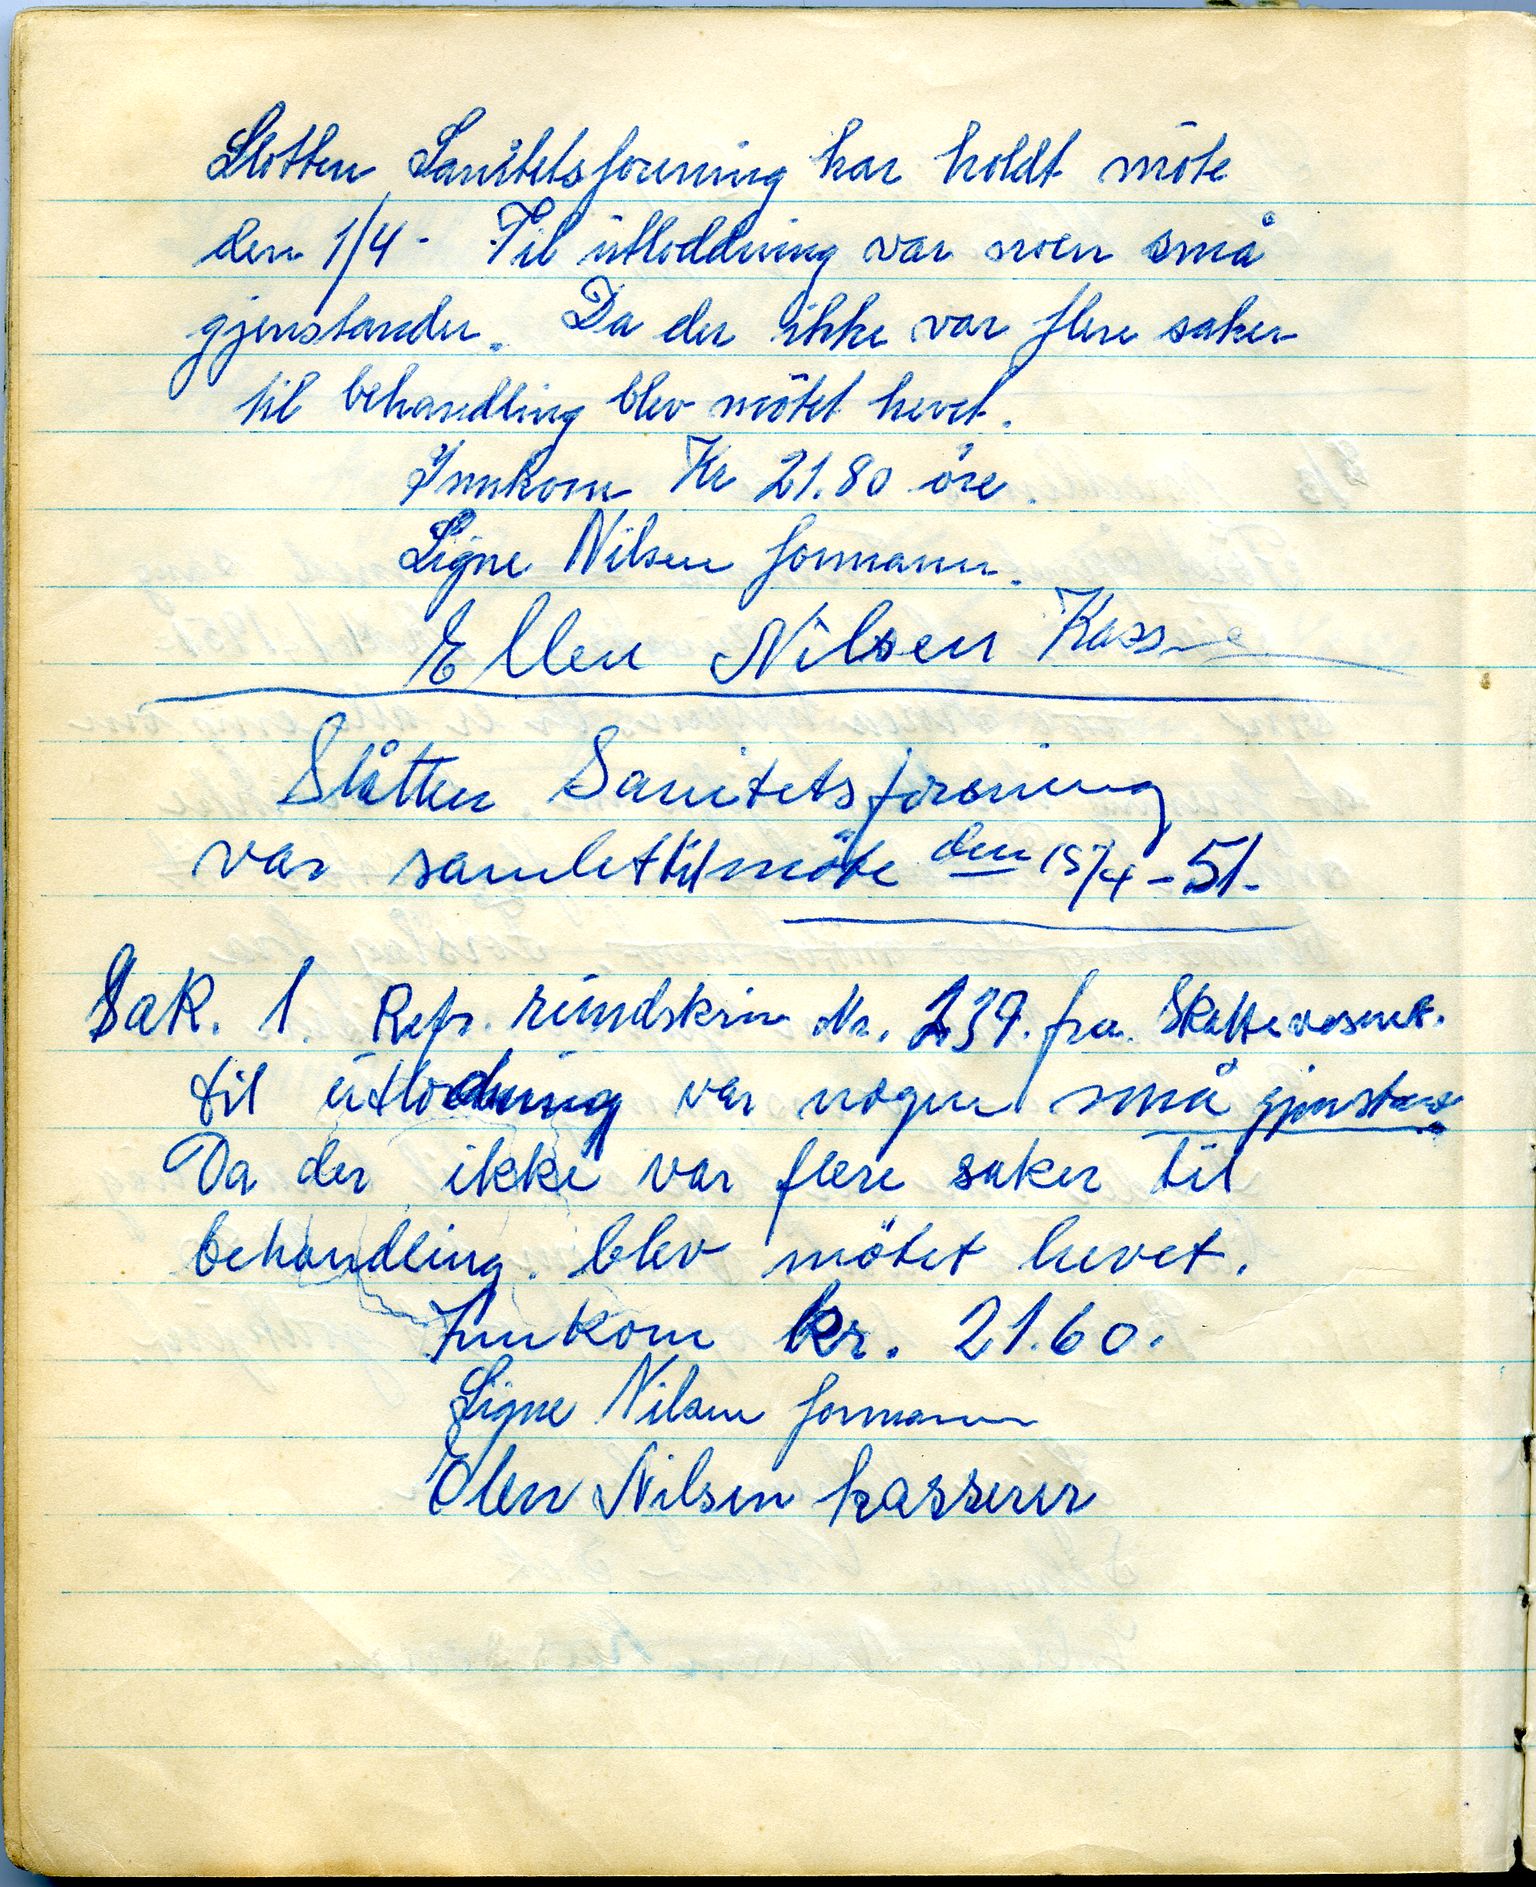 Slotten Sanitetsforening har holdt møte
den 1/4 - Til utloddning var noen små
gjenstander. Da der ikke var flere saker
til behandling blev møtet hevet.
Innkom Kr 21.80 öre.
Signe Nilsen formann.
Ellen Nilsen Kass
Slåtten Sanitetsforening
var samlet til møte den 15/4 - 51.
Sak. 1. Refr. rundskriv Nr. 239. fra. Skattevesent.
til utlodning var nogen små gjenstan
Da der ikke var flere saker til
behandling. blev mötet hevet.
Innkom kr. 21.60.
Signe Nilsen formann
Elen Nilsen kasserer